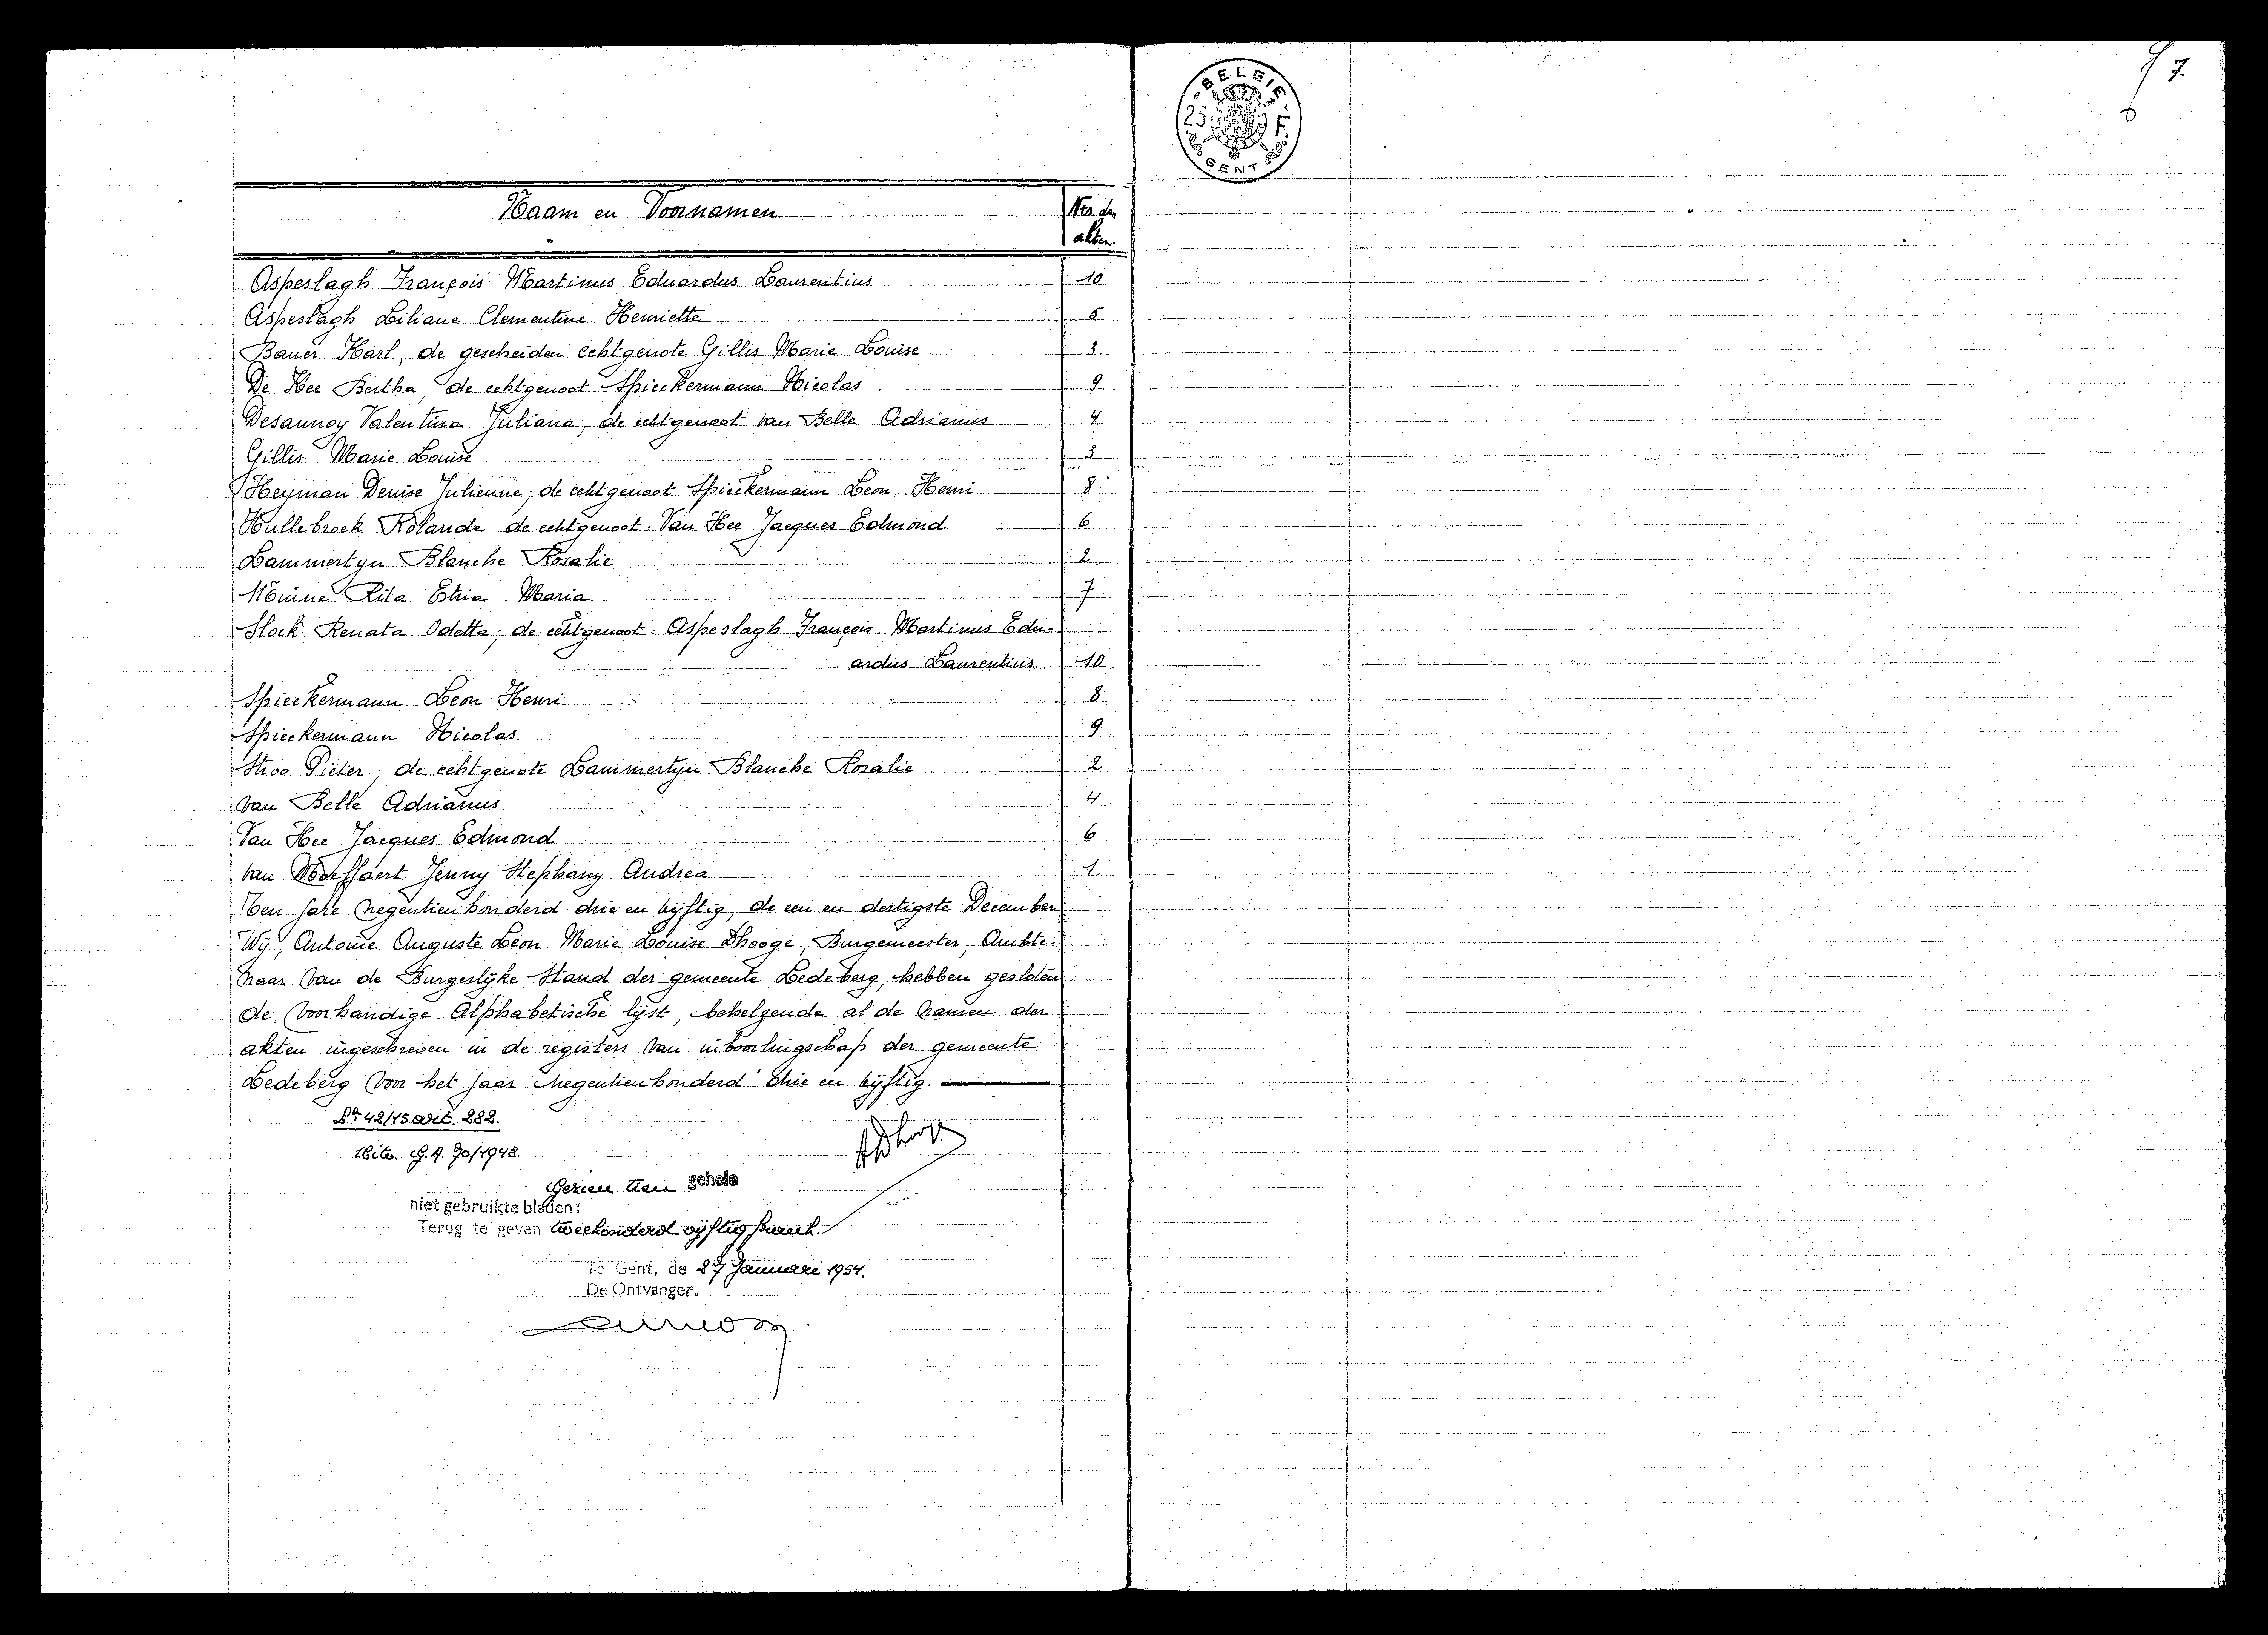 Naam en Voornamen
Nrs der
akten
Aspeslagh François Martinus Eduardus Laurentius 10
Aspeslagh Liliane Clementine Henriette 5
Bauer Karl, de gescheiden echtgenote Gillis Marie Louise 3
De Kee Bertha, de echtgenoot Spieckermann Nicolas 9
Desaunoy Valentina Juliana, de echtgenoot van Belle Adrianus 4
Gillis Marie Louise 3
Heyman Denise Julienne; de echtgenoot Spieckermann Leon Henri 8
Hullebroek Rolande de echtgenoot: Van Hee Jacques Edmond 6
Lammertyn Blanche Rosalie 2
Rita Maria 7
Slock Renata Odetta; de echtgenoot: Aspeslagh François Martinus Edu-
ardus Laurentius 10
Spieckermann Leon Henri 8
Spieckermann Nicolas 9
Stroo Pieter; de echtgenote Lammertyn Blanche Rosalie 2
van Belle Adrianus 4
Van Hee Jacques Edmond 6
van Jenny Stephany Andrea 1
Ten jare negentienhonderd drie en vijftig, de een en dertigste December
Wij, Antoine Auguste Leon Marie Louise Dhooge, Burgemeester, Ambte-
naar van de Burgerlijke Stand der gemeente Ledeberg, hebben gesloten
de voorhandige Alphabetische lijst, behelzende al de namen der
akten ingeschreven in de registers van der gemeente
Ledeberg voor het jaar negentienhonderd drie en vijftig.
42/15 art. 282.
70/1948.
Gezien tien gehele
niet gebruikte bladen:
Terug te geven tweehonderd vijftig frank.
Te Gent, de 27 Januari 1954.
De Ontvanger.
BELGIE
25 F.
GENT
7